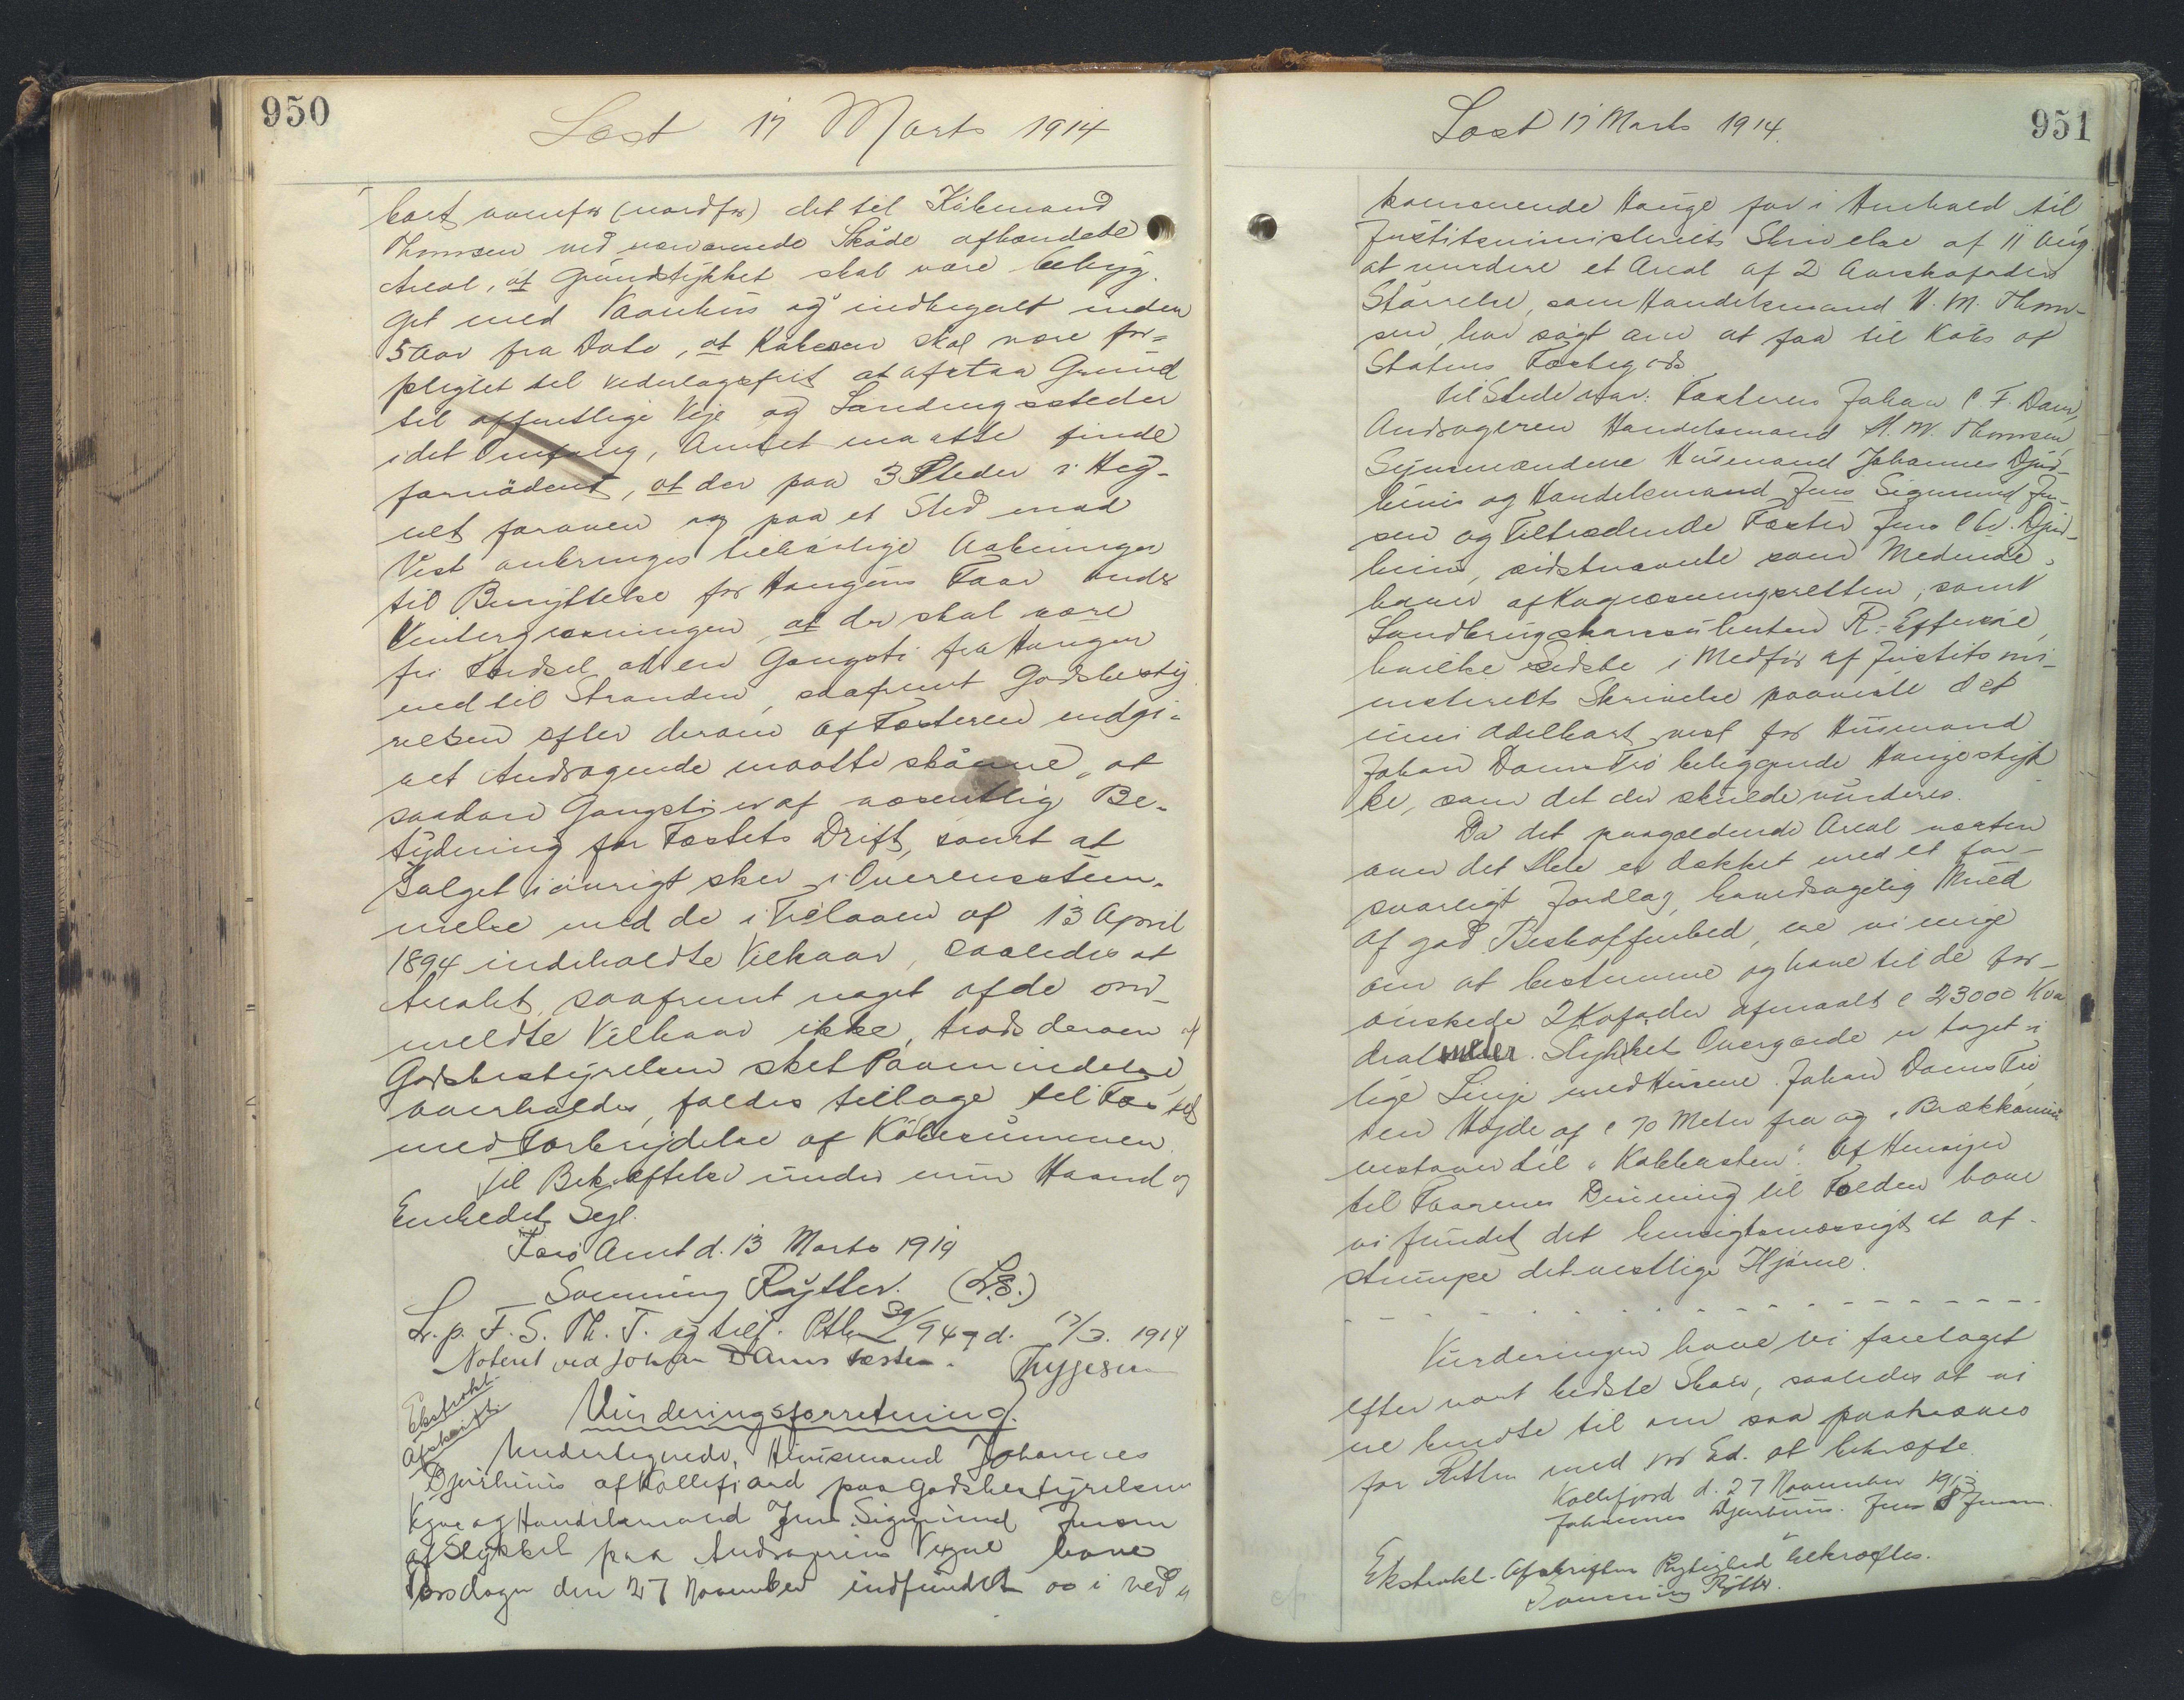 950
Læst 17 Marts 1914
bart ovenfor (nordfor) det til Købmand
Thomsen ved nærværende Skøde afhændede
Areal, at Grundstykket skal være bebyg-
get med Vaanhus og indhegnet inden
5 Aar fra Dato, at Køberen skal være for-
pligtet til vederlagsfrit at afstaa Grund
til offentlige Veje og Landingssteder
i det Omfang, Amtet maatte finde
fornødent, at der paa 3 Steder i Heg-
net foroven og paa et Sted mod
Vest anbringes tilbørlige Aabninger
til Benyttelse for Haugens Faar under
Vintergræsningen, at der skal være
fri Færdsel ad en Gangsti fra Haugen
ned til Stranden, saafremt Godsbesty-
relsen efter derom af Fæsteren indgi-
vet Andragende maatte skønne, at
saadan Gangsti er af væsentlig Be-
tydning for Fæstets Drift, samt at
Salget i øvrigt sker i Overensstem-
melse med de i Tillæg af 13 April
1894 indeholdte Vilkaar, saaledes at
Arealet, saafremt noget af de om-
meldte Vilkaar ikke, trods derom af
Godsbestyrelsen sket Paamindelse,
overholdes, falder tilbage til Fæstet
med Forbrydelse af Købesummen.
Til Bekræftelse under min Haand og
Embedets Segl.
Færø Amt d. 13 Marts 1914
Svenning Rytter. (L.S.)
L. p. F. S. Th. T. og tilf. Ptbr 39/949 d. 17/3. 1914
Noteret ved Johan Dams Fæste. Thygesen
Ekstrakt-
Afskrift.
Vurderingsforretning.
Undertegnede, Husmand Johannes
Djurhuus af Kollefjord paa Godsbestyrelsens
Vegne og Handelsmand Jens Sigmund Jensen
af Stykket paa Andragerens Vegne have
Torsdagen den 27 November indfundet os i ved-
951
Læst 17 Marts 1914.
kommende Hauge for i Henhold til
Justitsministeriets Skrivelse af 11 Aug.
at vurdere et Areal af 2 Aarskofoders
Størrelse, som Handelsmand H. M. Thom-
sen har søgt om at faa til Købs af
Statens Fæstegods.
Til Stede var: Fæsteren Johan C F. Dam,
Andrageren Handelsmand H. M. Thomsen,
Synsmændene Husmand Johannes Djur-
huus og Handelsmand Jens Sigmund Jen-
sen og Tiltrædende Fæster Jens Chr. Djur-
huus, sidstnævnte som Medinde-
haver af Kogræsningsretten, samt
Landbrugskonsulenten R. Effersøe,
hvilke Sidste i Medfør af Justitsmi-
nisteriets Skrivelse paaviste det
umiddelbart vest for Husmand
Johan Dams Trø beliggende Haugestyk-
ke, som det der skulde vurderes.
Da det paagældende Areal næsten
over det Hele er dækket med et for-
svarligt Jordlag, hovedsagelig Muld
af god Beskaffenhed, ere vi enige
om at bestemme og have til de for-
ønskede 2 Kofoder afmaalt c 23000 Kva-
dratmeter. Stykkets Overgærde er taget i
lige Linje med Husene Johan Dams Trø
en Højde af c 70 Meter fra og "Brekkanum"
vestover til "Kakkasten". Af Hensyn
til Faarenes Drivning til Folden have
vi fundet det hensigtsmæssigt at af-
stumpe det vestlige Hjørne.
- - - - - - - - - - - - - - - - - -
Vurderingen have vi foretaget
efter vort bedste Skøn, saaledes at vi
ere bundne til om saa paakræves
for Retten med vor Ed at bekræfte.
Kollefjord d. 27 November 1913
Johannes Djurhuus. Jens S Jensen.
Ekstrakt-Afskriftens Rigtighed bekræftes.
Svenning Rytter.